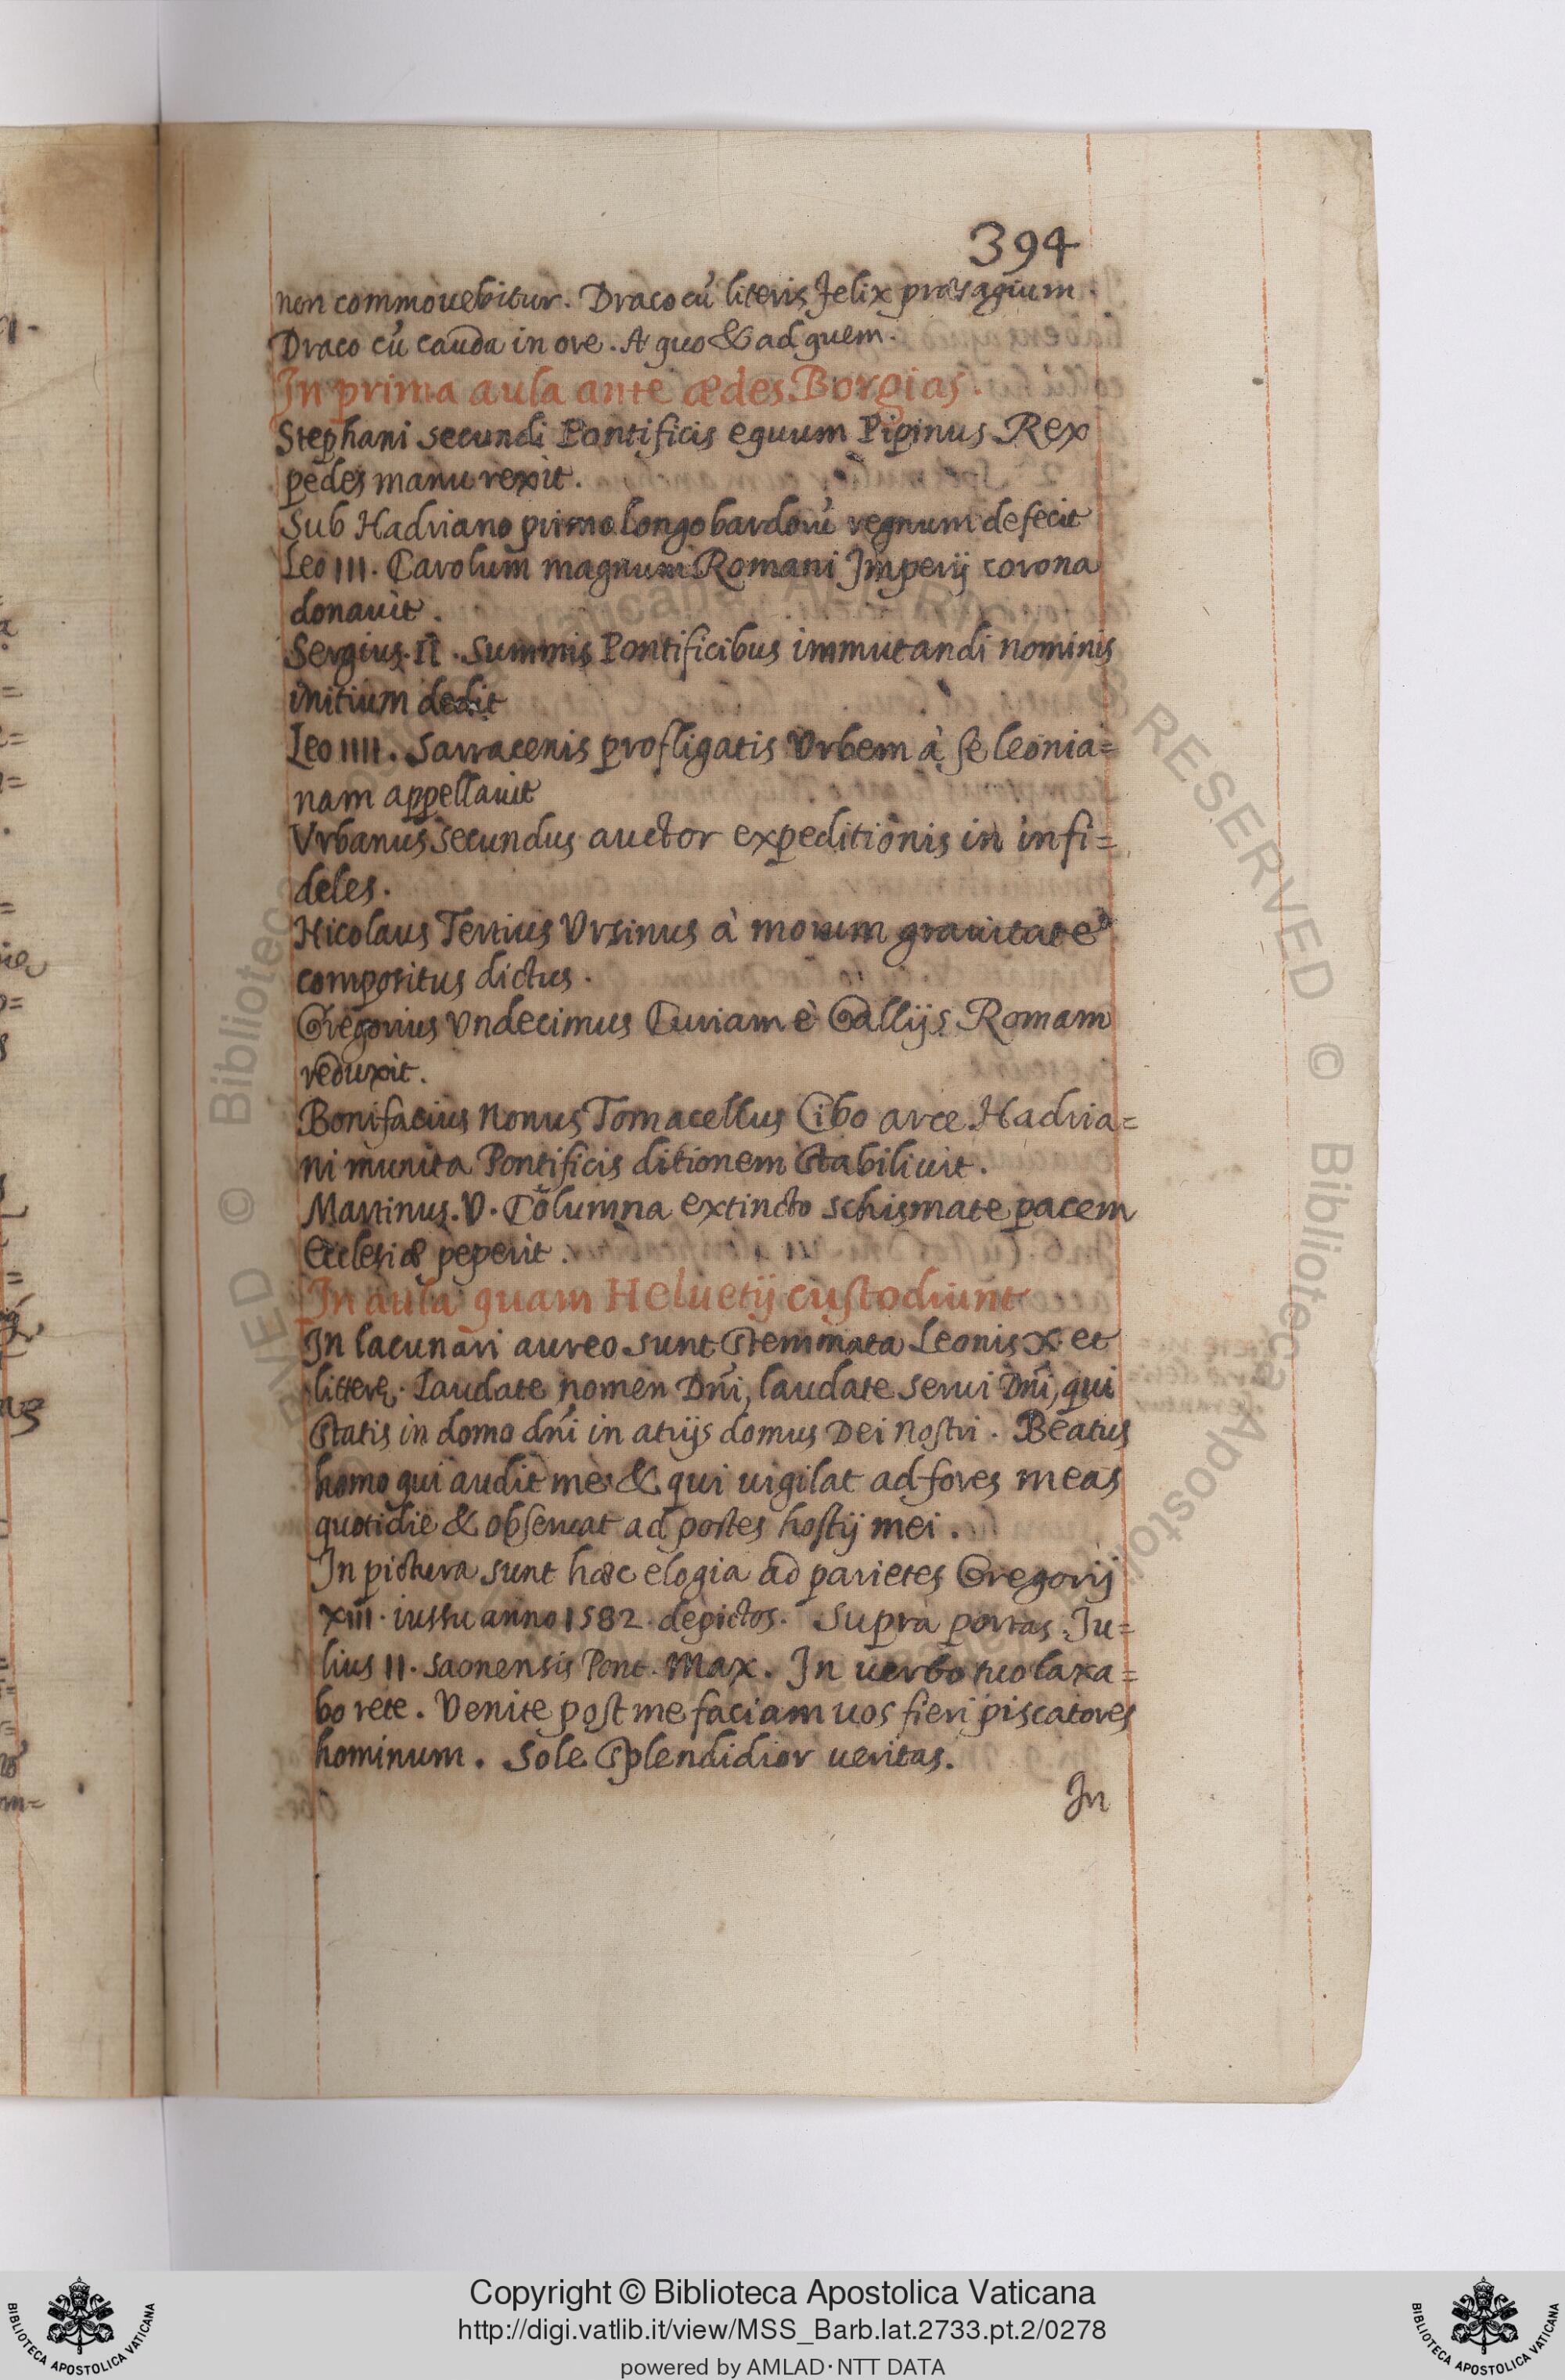 394
non commouebitur. Draco cũ literis felix præsagium.
Draco cũ cauda in ore. A quo & ad quem.
In prima aula ante ædes Borgias.
Stephani secundi Pontificis equum Pipinus Rex
pedes manu rexit.
Sub Hadriano primo longobardorũ regnum defecit
Leo III. Carolum magnum Romani Imperij corona
donauit.
Sergius. II. Summis Pontificibus immutandi nominis
initium dedit
Leo IIII. Sarracenis profligatis Vrbem à se leonia=
nam appellauit
Vrbanus secundus auctor expeditionis in infi=
deles.
Nicolaus Tertius Vrsinus à morum grauitate
compositus dictus.
Gregorius Vndecimus Curiam è Gallijs Romam
reduxit.
Bonifacius Nonus Tomacellus Cibo arce Hadria=
ni munita Pontificis ditionem stabiliuit.
Martinus. V. Columna extincto schismate pacem
Ecclesiæ peperit.
In aula quam Heluetij custodiunt
In lacunari aureo sunt stemmata Leonis X et
litterę. Laudate nomen Dñi, laudate serui Dñi, qui
statis in domo dñi in atrijs domus Dei nostri. Beatus
homo qui audit me & qui uigilat ad fores meas
quotidie & obseruat ad postes hostij mei.
In pictura sunt hæc elogia ad parietes Gregorij
XIII. iussu anno 1582. depictos. Supra portas Ju=
lius II. Saonensis Pont. Max. In uerbo tuo laxa=
bo rete. Venite post me faciam uos fieri piscatores
hominum. Sole splendidior ueritas.
In
Copyright © Biblioteca Apostolica Vaticana
http://digi.vatlib.it/view/MSS_Barb.lat.2733.pt.2/0278
powered by AMLAD·NTT DATA
BIBLIOTECA APOSTOLICA VATICANA
BIBLIOTECA APOSTOLICA VATICANA